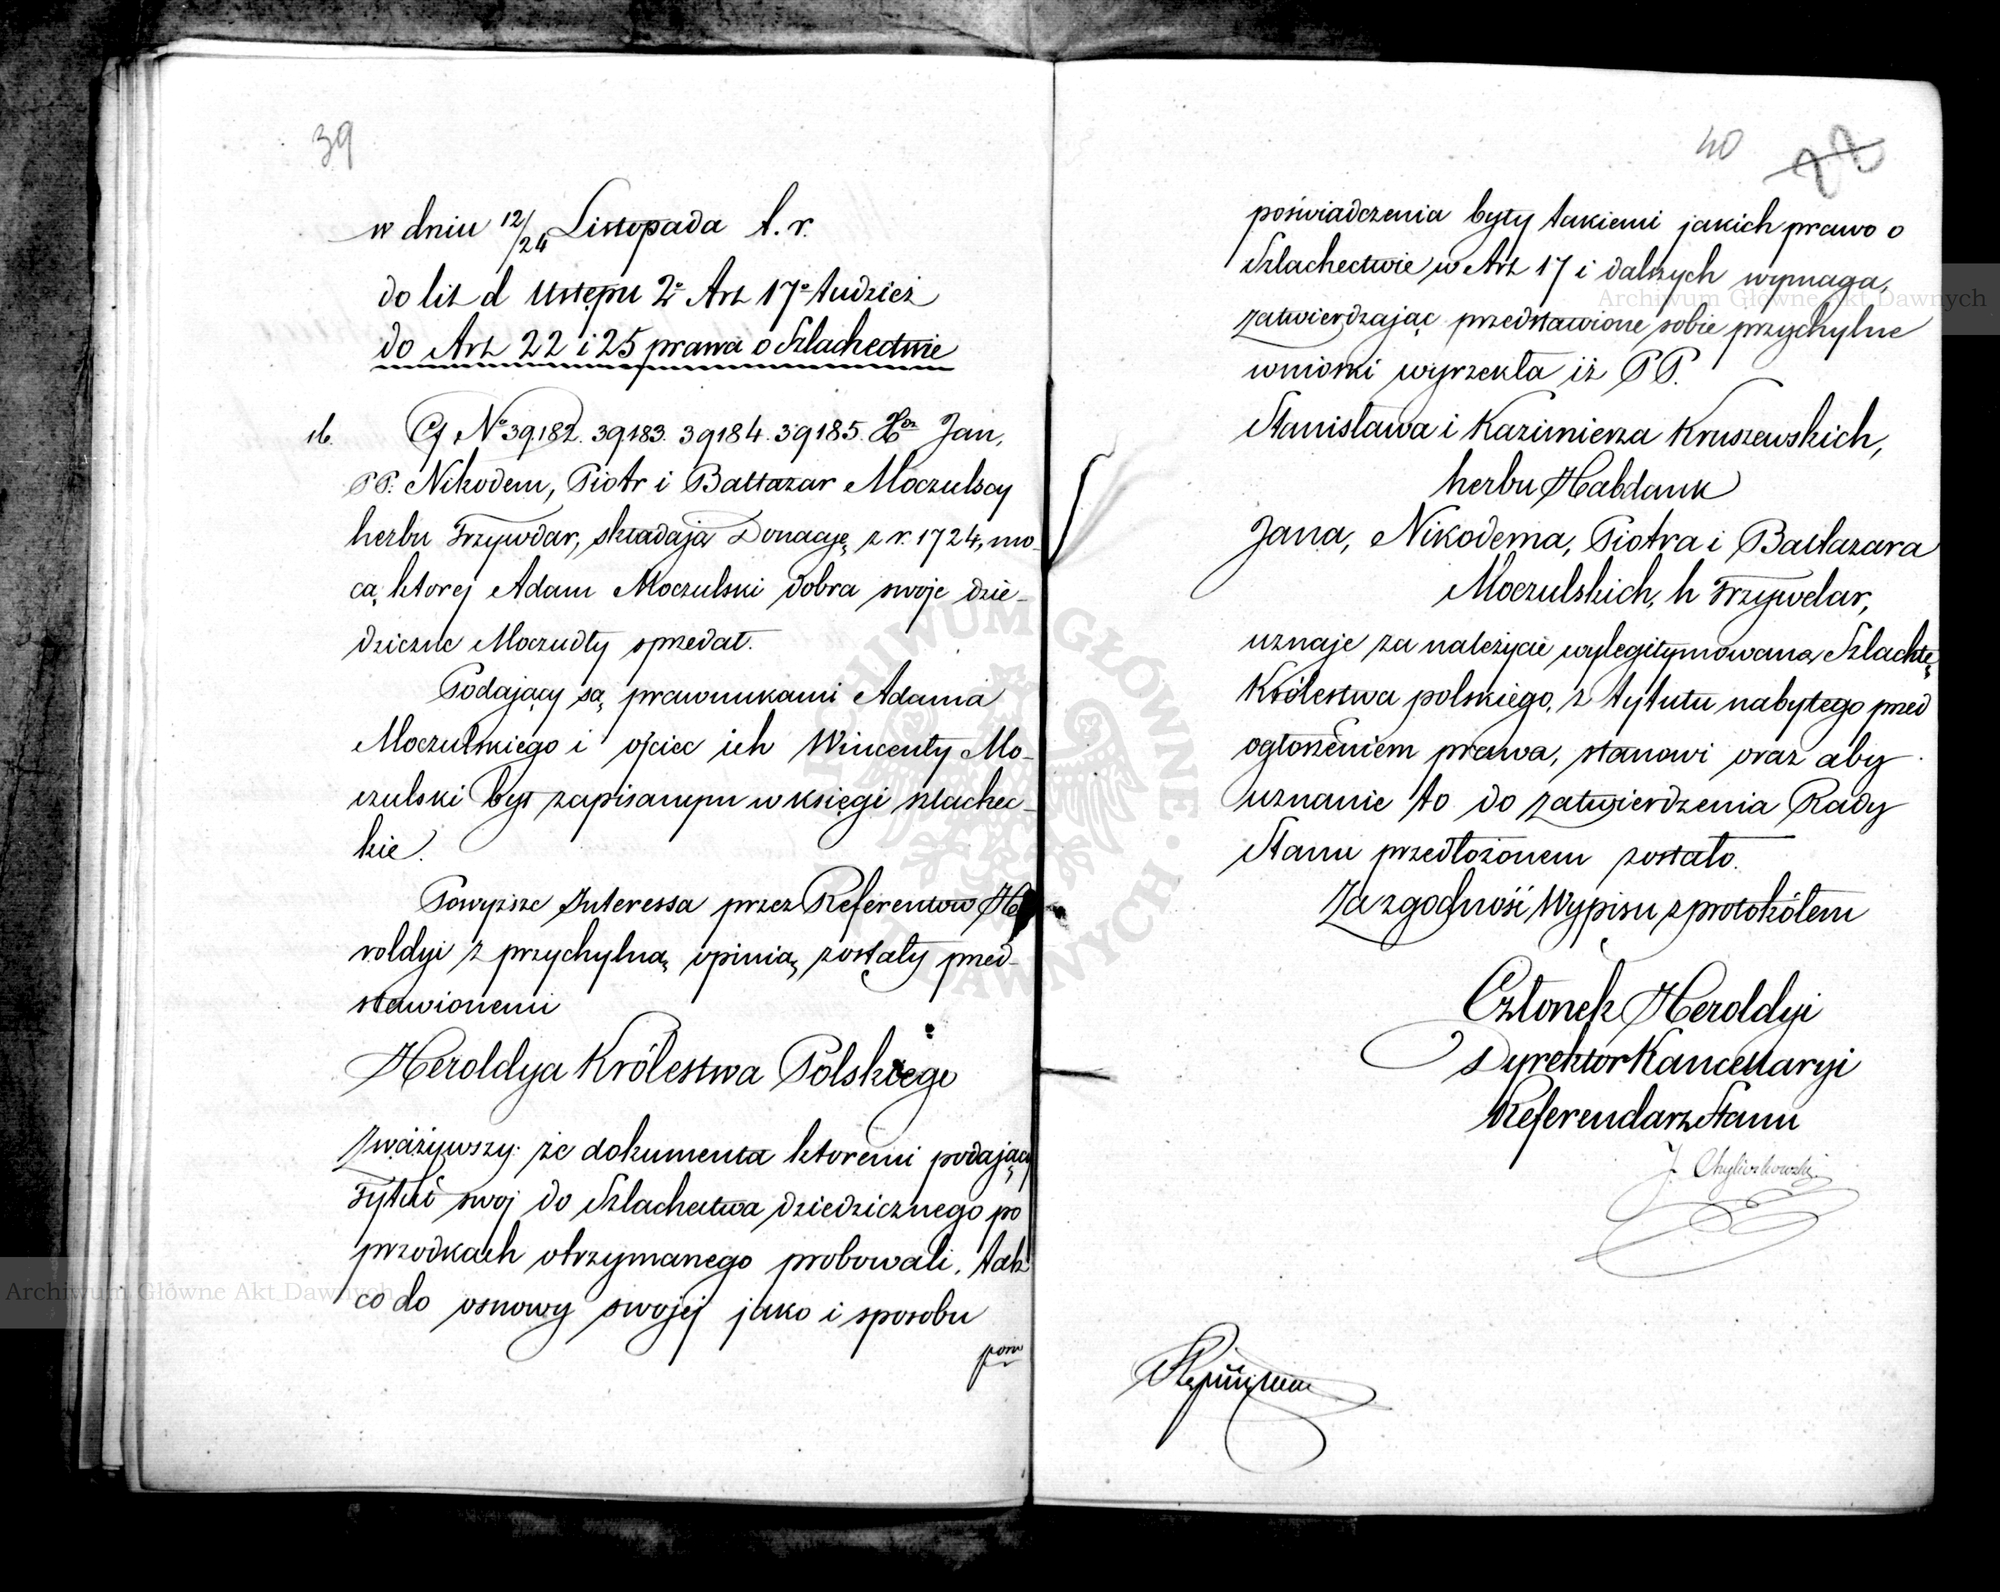 39
w dniu 12/24 Listopada t. r.
do lit d Ustępu 2º Art 17º tudzież
do Art 22 i 25 prawa o Szlachectwie
16. Cf Nº 39182. 39183. 39184. 39185. Jan,
PP. Nikodem, Piotr i Baltazar Moczulscy
herbu Trzywdar, składają Donacyę z r. 1724, mo-
cą ktorej Adam Moczulski dobra swoje dzie-
dziczne Moczudły sprzedał.
Podający są prawnukami Adama
Moczulskiego i ojciec ich Wincenty Mo-
czulski był zapisanym w księgi szlachec-
kie.
Powyższe Interessa przez Referentow He
roldyi z przychylną opinią zostały przed-
stawionemi
Heroldya Królestwa Polskiego
Zważywszy: że dokumenta ktoremi podający
Tytuł swoj do Szlachectwa dziedzicznego po
przodkach otrzymanego probowali, tak
co do osnowy swojej jako i sposobu
poś
40 22
poświadczenia były takiemi jakich prawo o
Szlachectwie w Art 17 i dalszych wymaga,
zatwierdzając przedstawione sobie przychylne
wnioski wyrzekła iż PP.
Stanisława i Kazimierza Kruszewskich,
herbu Habdank
Jana, Nikodema, Piotra i Baltazara
Moczulskich, h Trzywdar,
uznaje za należycie wylegitymowaną Szlachtę
Królestwa polskiego, z tytułu nabytego przed
ogłoszeniem prawa, stanowi oraz aby
uznanie to do zatwierdzenia Rady
Stanu przedłożonem zostało.
Za zgodność Wypisu z protokółem
Członek Heroldyi
Dyrektor Kancellaryi
Referendarz Stanu
J. Chyliczkowski
Archiwum Główne Akt Dawnych
Archiwum Główne Akt Dawnych
ARCHIWUM GŁÓWNE AKT DAWNYCH